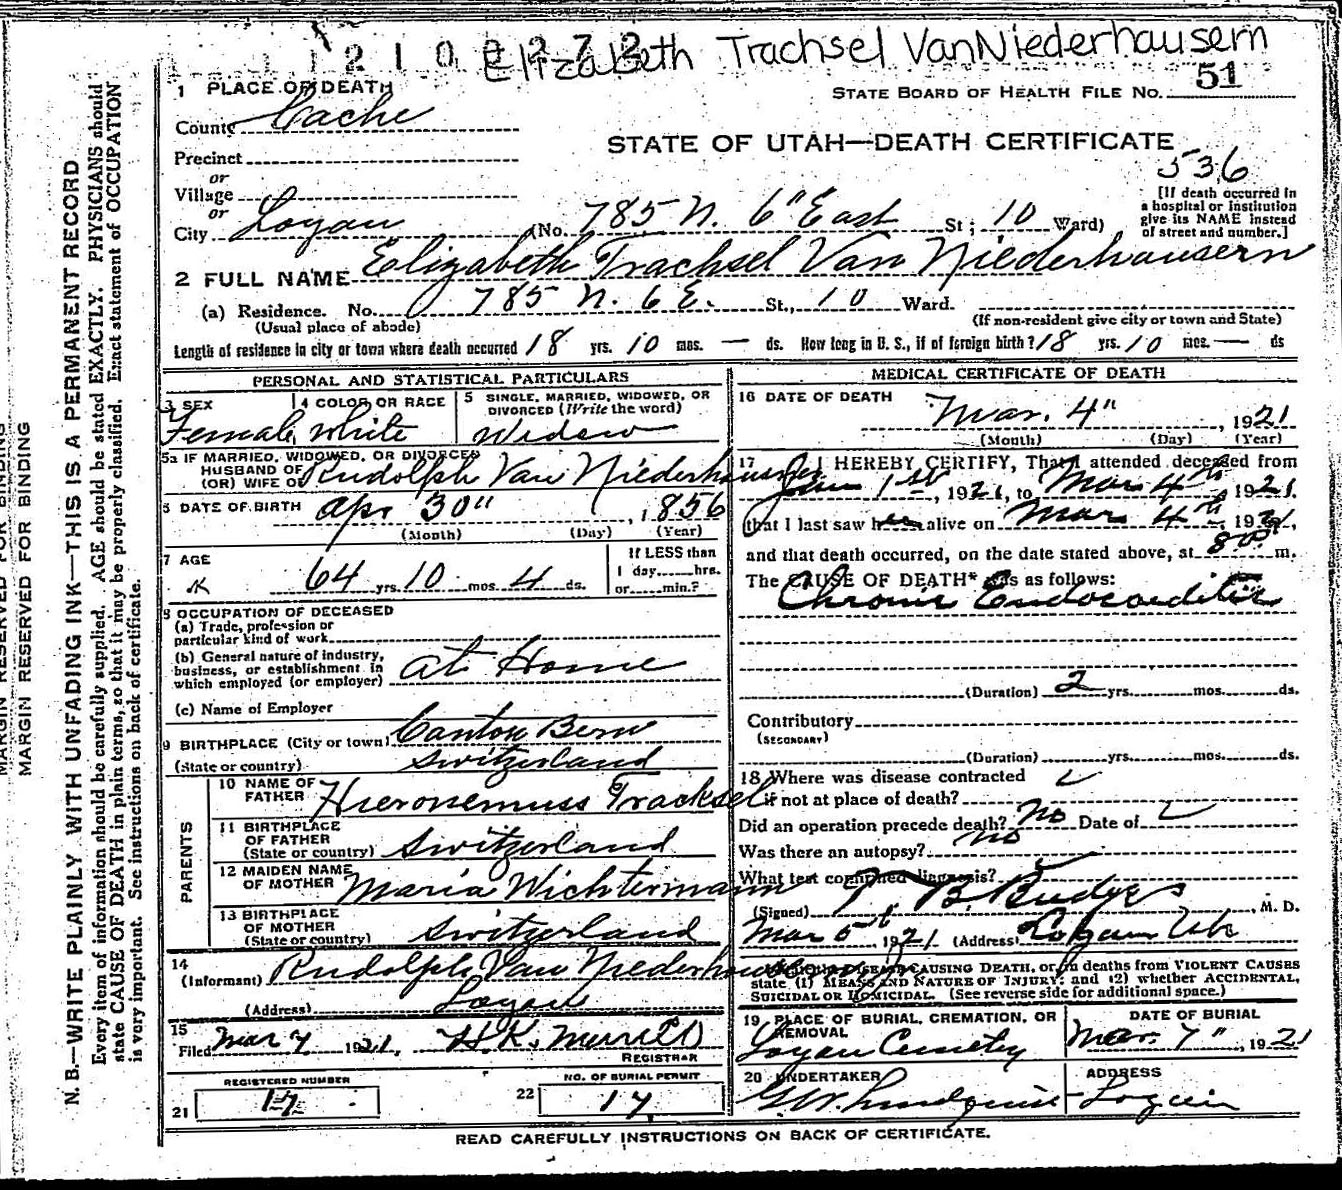 2100272
Elizabeth Trachsel VanNiederhausern
1 PLACE OF DEATH
STATE BOARD OF HEALTH FILE No. 51
County Cache
STATE OF UTAH—DEATH CERTIFICATE
Precinct
536
or
Village
[If death occurred in
a hospital or institution
give its NAME instead
of street and number.]
or
City Logan (No. 785 N. 6" East St; 10 Ward)
2 FULL NAME Elizabeth Trachsel Van Niederhausern
(a) Residence. No. 785 N. 6 E. St., 10 Ward.
(Usual place of abode) (If non-resident give city or town and State)
Length of residence in city or town where death occurred 18 yrs. 10 mos. — ds. How long in U. S., if of foreign birth? 18 yrs. 10 mos. — ds
PERSONAL AND STATISTICAL PARTICULARS
3 SEX
Female
4 COLOR OR RACE
White
5 SINGLE, MARRIED, WIDOWED, OR
DIVORCED (Write the word)
Widow
5a IF MARRIED, WIDOWED, OR DIVORCED
HUSBAND OF
(OR) WIFE OF Rudolph Van Niederhausern
6 DATE OF BIRTH Apr 30" , 1856
(Month) (Day) (Year)
7 AGE
64 yrs. 10 mos. 4 ds.
If LESS than
1 day......hrs.
or......min.?
8 OCCUPATION OF DECEASED
(a) Trade, profession or
particular kind of work
(b) General nature of industry,
business, or establishment in
which employed (or employer) at Home
(c) Name of Employer
9 BIRTHPLACE (City or town) Canton Bern
(State or country) Switzerland
PARENTS
10 NAME OF
FATHER Hieronemuss Trachsel
11 BIRTHPLACE
OF FATHER
(State or country) Switzerland
12 MAIDEN NAME
OF MOTHER Maria Wichtermann
13 BIRTHPLACE
OF MOTHER
(State or country) Switzerland
14
(Informant) Rudolph Van Niederhausern
(Address) Logan
15
Filed Mar 7 1921, H.K. Merrill
REGISTRAR
REGISTERED NUMBER
21 17
NO. OF BURIAL PERMIT
22 17
MEDICAL CERTIFICATE OF DEATH
16 DATE OF DEATH
Mar. 4" , 1921
(Month) (Day) (Year)
17 I HEREBY CERTIFY, That I attended deceased from
Jan 1st, 1921, to Mar 4th, 1921.
that I last saw her alive on Mar 4th, 1921,
and that death occurred, on the date stated above, at m.
The CAUSE OF DEATH* was as follows:
Chronic Endocarditis
(Duration) 2 yrs. mos. ds.
Contributory
(SECONDARY)
(Duration) yrs. mos. ds.
18 Where was disease contracted
if not at place of death?
Did an operation precede death? No Date of
Was there an autopsy? No
What test confirmed diagnosis?
(Signed) B. Budge, M. D.
Mar 5th, 1921 (Address) Logan Utah
CAUSING DEATH, or, in deaths from VIOLENT CAUSES
state (1) MEANS AND NATURE OF INJURY; and (2) whether ACCIDENTAL,
SUICIDAL OR HOMICIDAL. (See reverse side for additional space.)
19 PLACE OF BURIAL, CREMATION, OR
REMOVAL
Logan Cemetry
DATE OF BURIAL
Mar. 7", 1921
20 UNDERTAKER
G.W. Lindquist
ADDRESS
Logan
READ CAREFULLY INSTRUCTIONS ON BACK OF CERTIFICATE.
MARGIN RESERVED FOR BINDING
MARGIN RESERVED FOR BINDING
N. B.—WRITE PLAINLY WITH UNFADING INK—THIS IS A PERMANENT RECORD
Every item of information should be carefully supplied. AGE should be stated EXACTLY. PHYSICIANS should
state CAUSE OF DEATH in plain terms, so that it may be properly classified. Exact statement of OCCUPATION
is very important. See instructions on back of certificate.